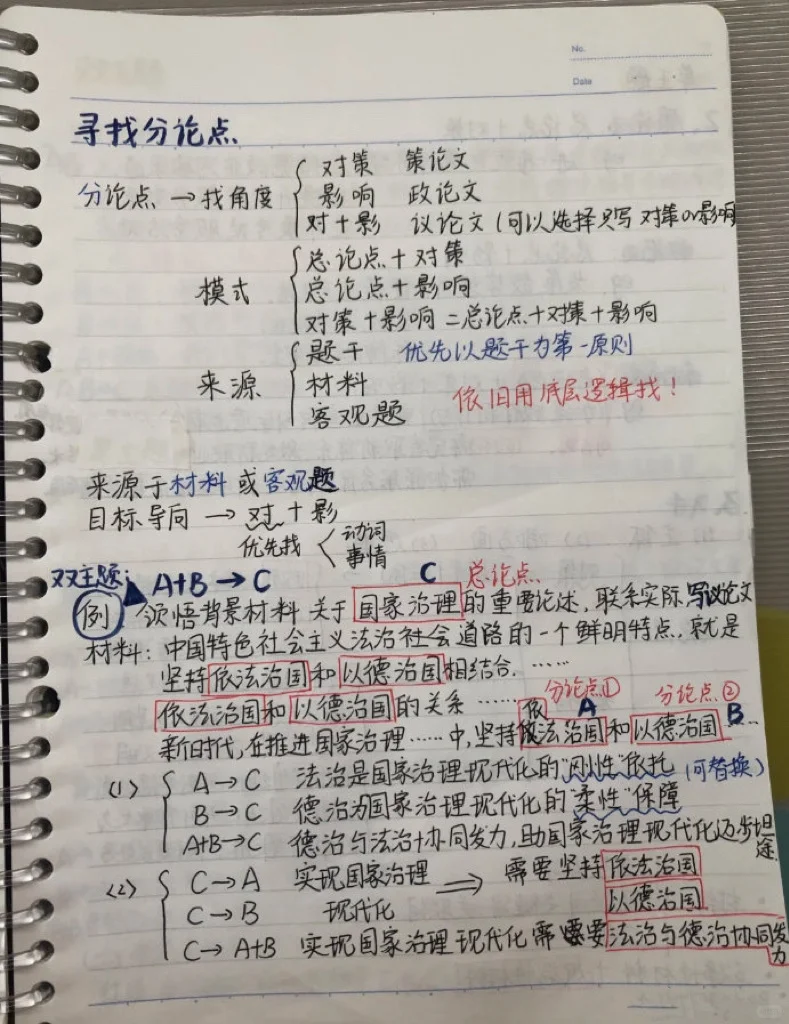 No.
Date
寻找分论点
对策 策论文
分论点 → 找角度 影响 政论文
对+影 议论文 (可以选择只写 对策or影响
总论点+对策
模式 总论点+影响
对策+影响=总论点+对策+影响
题干 优先以题干为第一原则
来源 材料 依旧用底层逻辑找!
客观题
来源于材料 或客观题
目标导向 → 对+影
优先找 动词
事情
双主题: A+B → C C 总论点
例 领悟背景材料 关于国家治理的重要论述, 联系实际, 写议论文
材料: 中国特色社会主义法治社会道路的一个鲜明特点, 就是
坚持依法治国和以德治国相结合. ……
分论点① 分论点②
依法治国和以德治国的关系 …… 依 A B
新时代, 在推进国家治理……中, 坚持依法治国和以德治国…
(1) A → C 法治是国家治理现代化的"刚性"依托 (可替换)
B → C 德治为国家治理现代化的"柔性"保障
A+B → C 德治与法治协同发力, 助国家治理现代化迈步坦途.
(2) C → A 实现国家治理 ⟹ 需要坚持依法治国
C → B 现代化 以德治国
C → A+B 实现国家治理现代化需要法治与德治协同发力